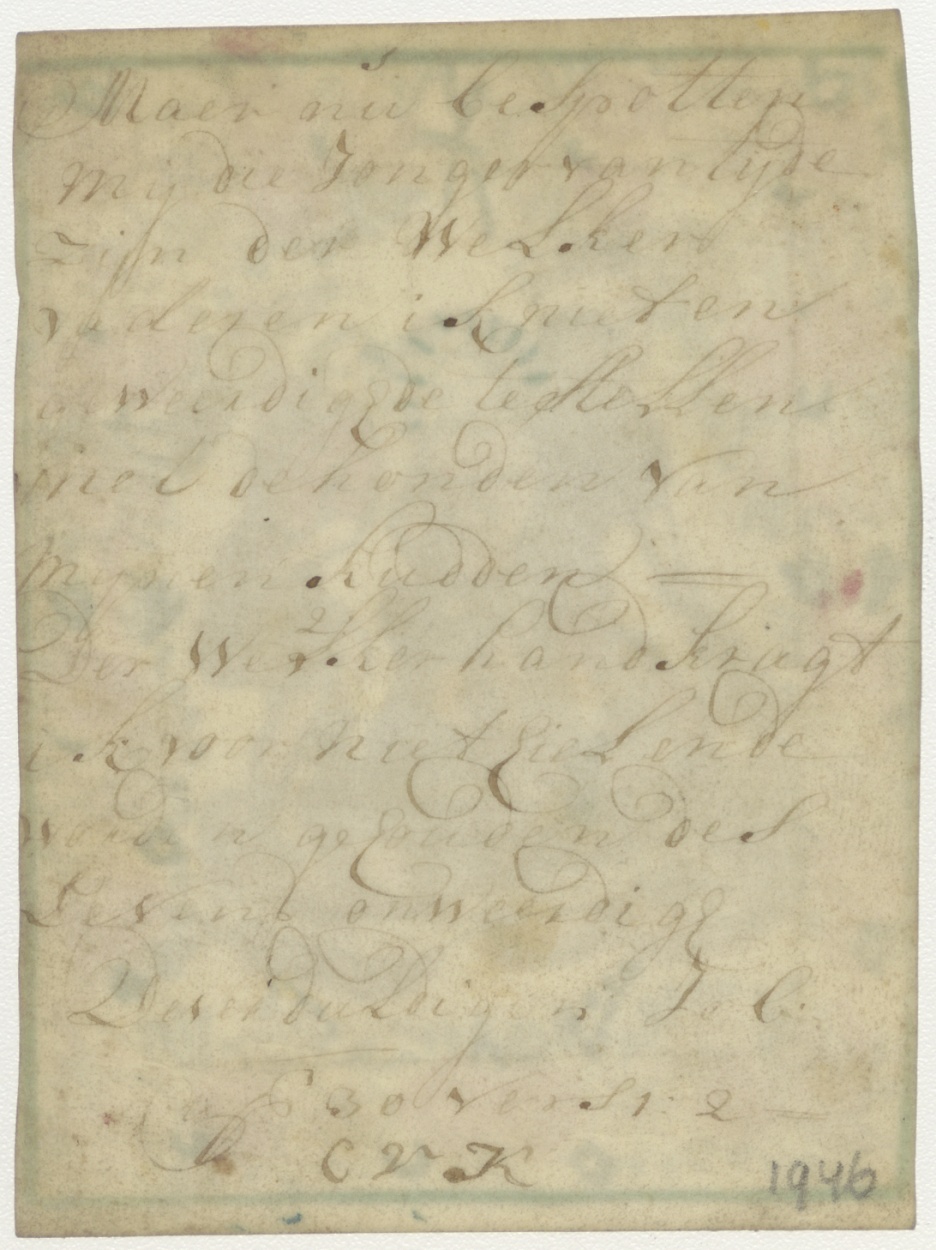 Maer nu bespotten
mij die Jonger van tyde
zijn der Welker
vaderen ik niet en
geweerdigde te stellen
met de honden van
Mynen kudden —
Der Welker hand kragt
ik voor niet hielende
worden gehouden des
Levens onweerdig
De verduldigen Job
Cap 30 vers 1: 2 —
C V K
1946